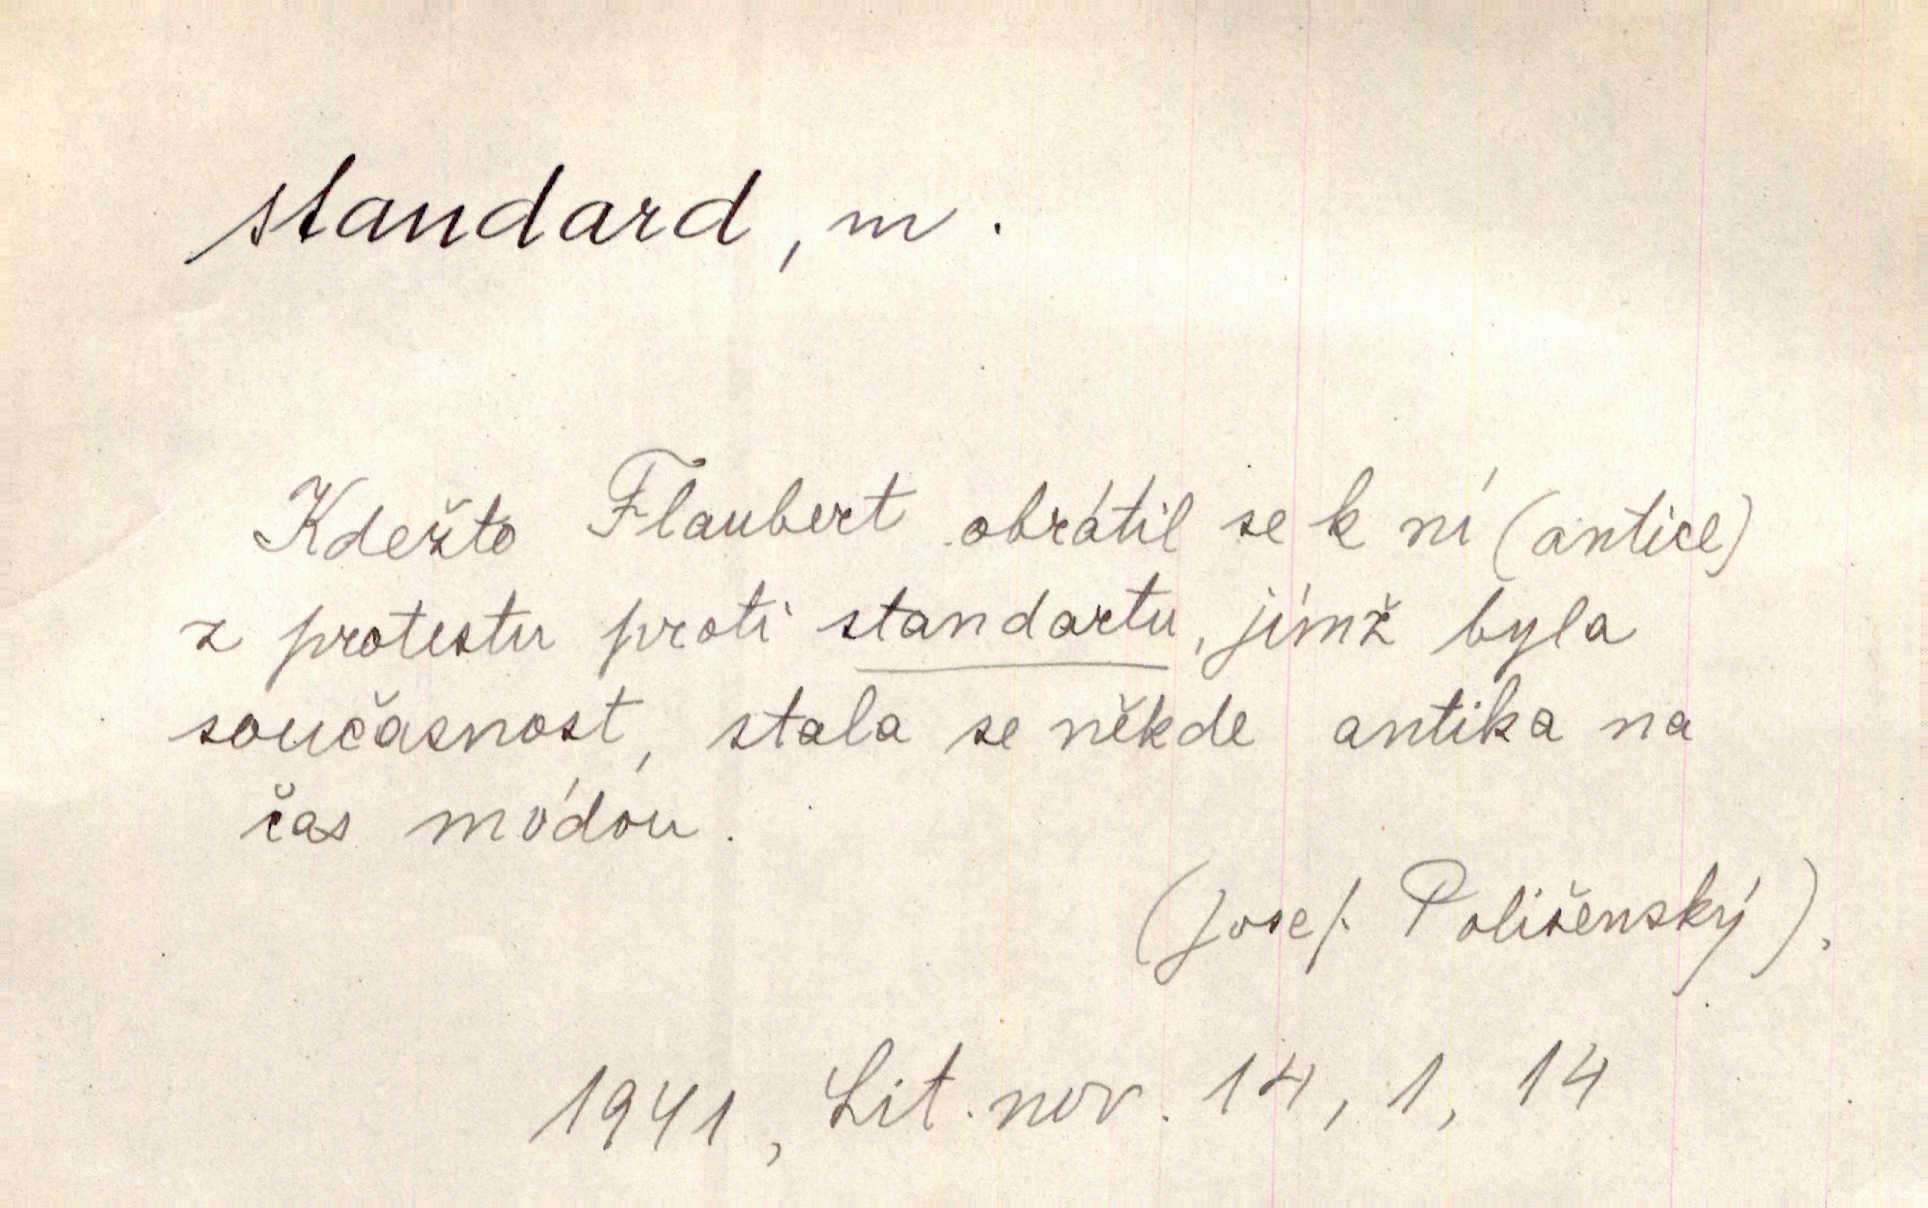 standard, m.
Kdežto Flaubert obrátil se k ní (antice)
z protestu proti standartu, jímž byla
současnost, stala se někde antika na
čas módou.
(Josef Polišenský).
1941, Lit. nov. 14, 1, 14